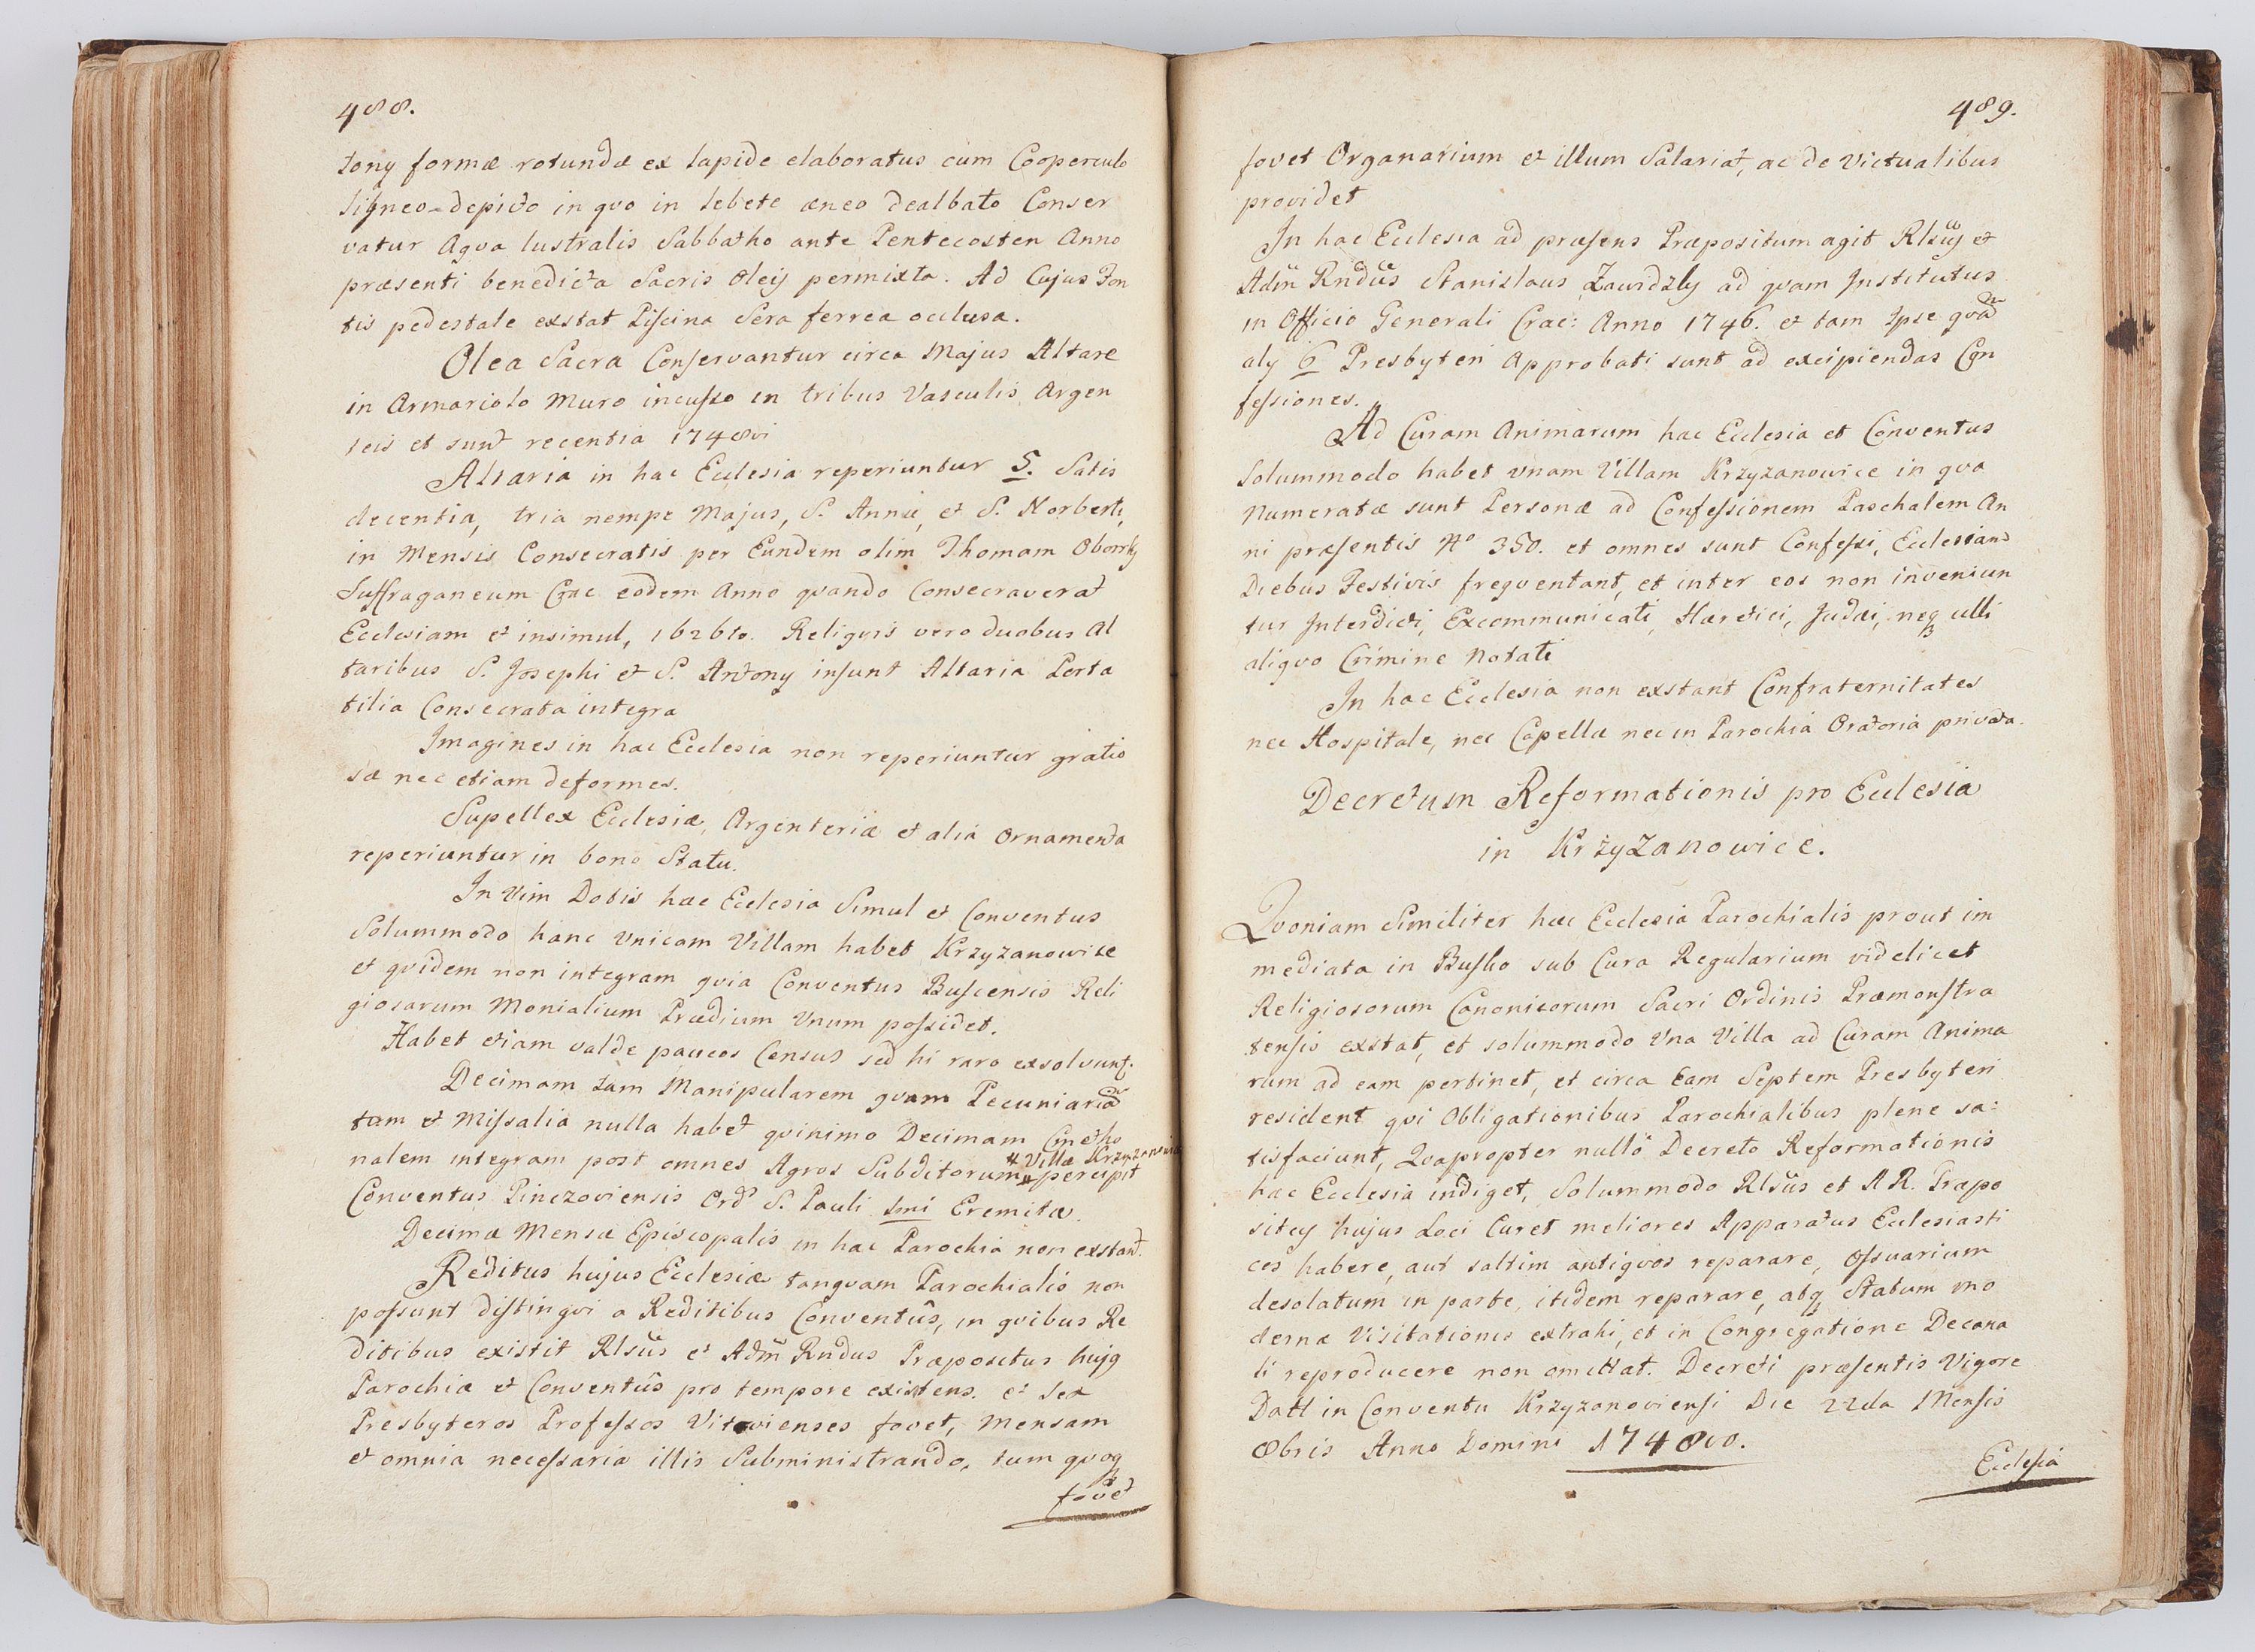 488.
tony formæ rotundæ ex lapide elaboratus cum Cooperculo
ligneo depicto in qvo in lebete æneo dealbato Conser
vatur Aqva lustralis Sabbatho ante Pentecosten Anno
præsenti benedicta Sacris Oleij permixta. Ad Cujus Fon
tis pedestale exstat Piscina Sera ferrea occlusa.
Olea Sacra Conservantur circa Majus Altare
in Armariolo Muro incusso in tribus Vasculis Argen
teis et sunt recentia 1748vi
Altaria in hac Ecclesia reperiuntur 5. Satis
decentia, tria nempe Majus, S. Annæ, et S. Norberti,
in Mensis Consecratis per Eundem olim Thomam
Suffraganeum Crac eodem Anno qvando Consecraverat
Ecclesiam et insimul, 1626to. Reliqvis vero duobus Al
taribus S. Josephi et S. Antony insunt Altaria Porta
tilia Consecrata integra
Imagines in hac Ecclesia non reperiuntur gratio
sæ nec etiam deformes.
Supellex Ecclesiæ, Argenteriæ et alia Ornamenta
reperiuntur in bono Statu.
In Vim Dotis hæc Ecclesia Simul et Conventus
Solummodo hanc Vnicam Villam habet Krzyzanowice
et qvidem non integram qvia Conventus Buscensis Reli
giosarum Monialium Prædium Vnum possidet.
Habet etiam valde paucos Census sed hi raro exsolvunt.
Decimam tam Manipularem qvam Pecuniariã
tam et Missalia nulla habet qvinimo Decimam Cmetho
nalem integram post omnes Agros Subditorum # percipit
# Villæ Krzyzanowice
Conventus Pinczoviensis Ord S. Pauli 1mi Eremitæ.
Decimæ Mensæ Episcopalis in hac Parochia non exstant.
Reditus hujus Ecclesiæ tanqvam Parochialis non
possunt distingvi a Reditibus Conventûs, in qvibus Re
ditibus existit Rlsus et Adm Rndus Præpositus hujg
Parochiæ et Conventûs pro tempore existens. et sex
Presbyteros Professos Vitovienses fovet, Mensam
et omnia necessaria illis Subministrando, tum qvoq
fovet
489.
fovet Organarium et illum Salariat, ac de Victualibus
providet
In hac Ecclesia ad præsens Præpositum agit Rlsus et
Adm Rndus Stanislaus ad qvam Institutus
in Officio Generali Crac: Anno 1746. et tam Ipse qvã
aly 6 Presbyteri Approbati sunt ad excipiendas Con
fessiones.
Ad Curam Animarum hæc Ecclesia et Conventus
Solummodo habet vnam Villam Krzyzanowice in qva
Numeratæ sunt Personæ ad Confessionem Paschalem An
ni præsentis No 350. et omnes sunt Confessi, Ecclesiam
Diebus Festivis freqventant, et inter eos non inveniun
tur Interdicti, Excommunicati, Hæretici, Judæi, neq ulli
aliqvo Crimine Notati
In hac Ecclesia non exstant Confraternitates
nec Hospitale, nec Capellæ nec in Parochia Oratoria privata.
Decretum Reformationis pro Ecclesia
in KrżyZanowice.
Qvoniam Similiter hæc Ecclesia Parochialis prout im
mediata in Busko sub Cura Regularium videlicet
Religiosorum Canonicorum Sacri Ordinis Præmonstra
tensis exstat, et solummodo Vna Villa ad Curam Anima
rum ad eam pertinet, et circa Eam Septem Presbyteri
resident qvi Obligationibus Parochialibus plene sa:
tisfaciunt, Qvapropter nullô Decreto Reformationis
hæc Ecclesia indiget, Solummodo Rlsus et A R. Præpo
situs hujus Loci Curet meliores Apparatus Ecclesiasti
cos habere, aut saltim antiqvos reparare, Ossuarium
desolatum in parte, itidem reparare, atq Statum mo
dernæ Visitationis extrahi, et in Congregatione Decana
li reproducere non omittat. Decreti præsentis Vigore
Datt in Conventu Krzyzanoviensi Die 22da Mensis
8bris Anno Domini 1748vo.
Ecclesia